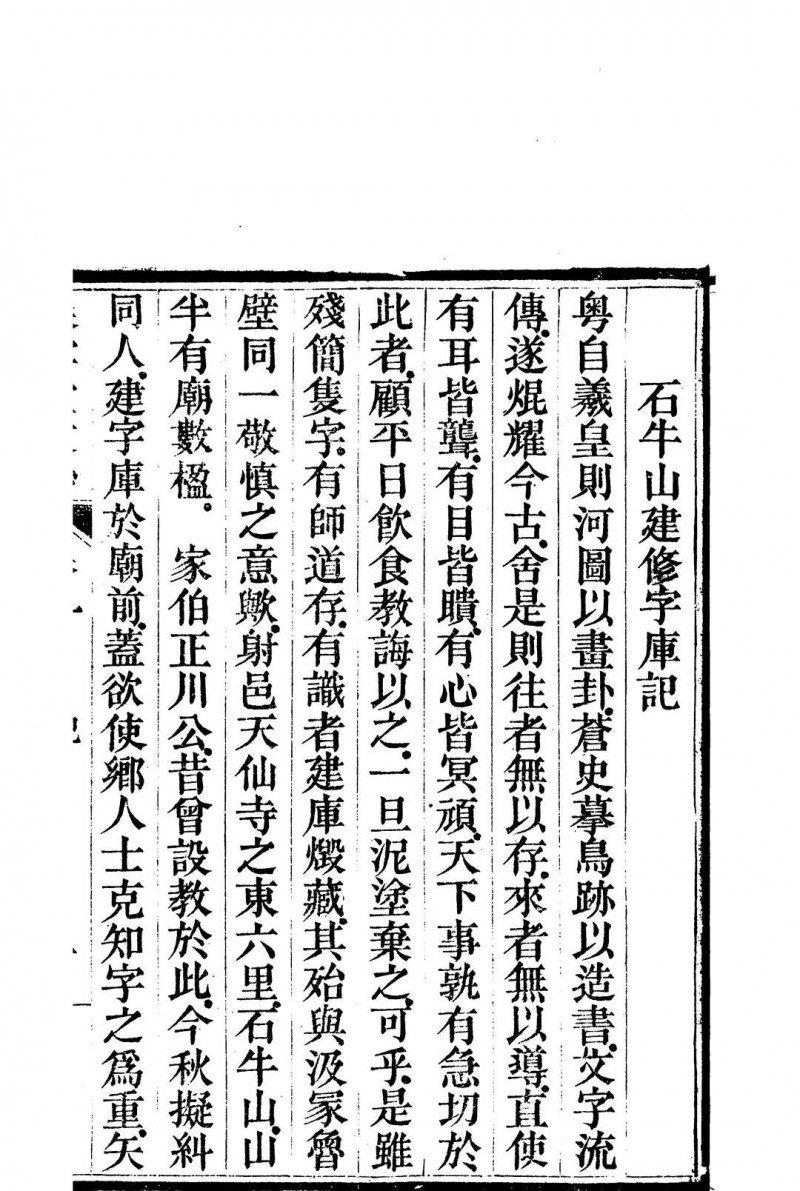 石牛山建修字庫記
粤自羲皇則河圖以畫卦蒼史摹鳥跡以造書文字流
傳遂焜耀今古舍是則往者無以存來者無以導直使
有耳皆聾有目皆瞶有心皆冥頑天下事孰有急切於
此者顧平日飲食教誨以之一旦泥塗棄之可乎是雖
殘簡隻字有師道存有識者建庫燬藏其殆與汲冢魯
壁同一敬慎之意歟射邑天仙寺之東六里石牛山山
半有廟數楹。 家伯正川公昔曾設教於此今秋擬糾
同人建字庫於廟前蓋欲使鄉人士克知字之為重矢